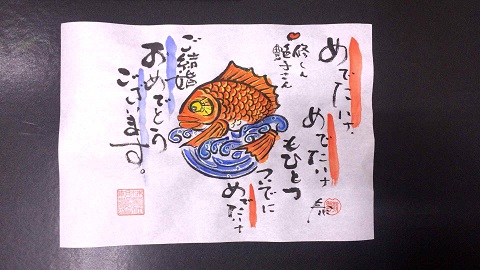 めでたいナ
めでたいナ
もひとつ
ついでに
めでたいナ
修くん
子さん
ご結婚
おめでとう
ございます。